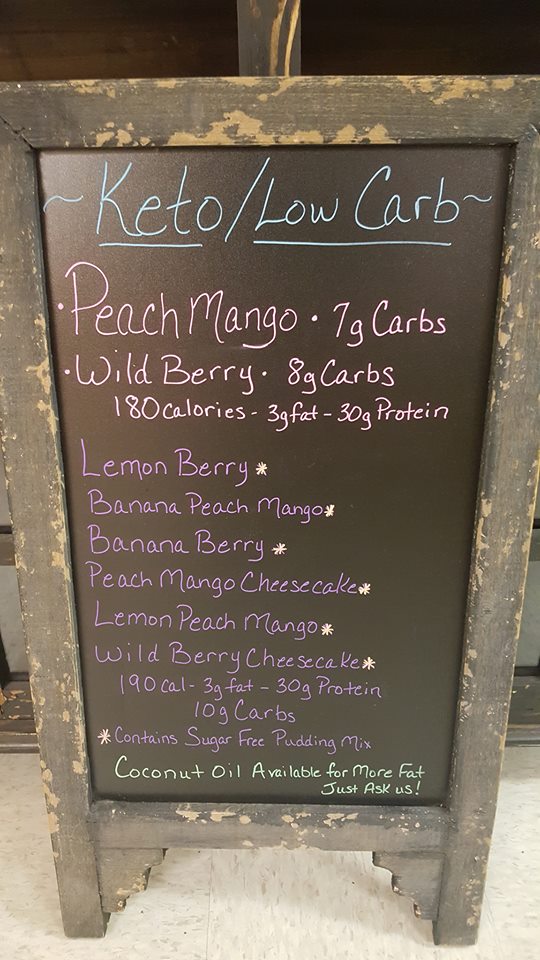 ~ Keto/Low Carb ~
· Peach Mango · 7g Carbs
· Wild Berry · 8g Carbs
180calories - 3gfat - 30g Protein
Lemon Berry *
Banana Peach Mango *
Banana Berry *
Peach Mango Cheesecake *
Lemon Peach Mango *
Wild Berry Cheesecake *
190 cal - 3g fat - 30g Protein
10g Carbs
* Contains Sugar Free Pudding Mix
Coconut Oil Available for More Fat
Just Ask us!